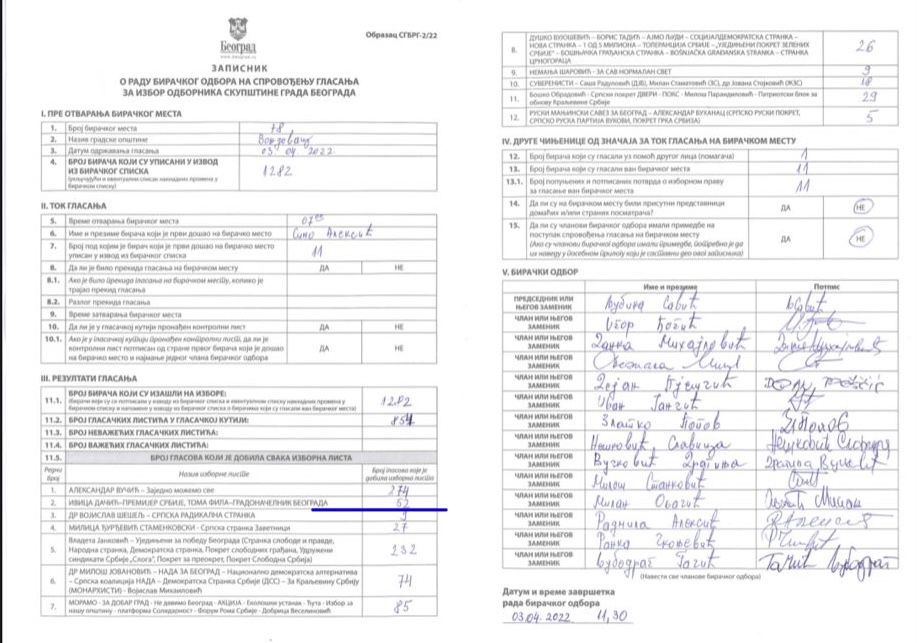 Београд
www.beograd.rs
Образац СГБРГ-2/22
ЗАПИСНИК
О РАДУ БИРАЧКОГ ОДБОРА НА СПРОВОЂЕЊУ ГЛАСАЊА
ЗА ИЗБОР ОДБОРНИКА СКУПШТИНЕ ГРАДА БЕОГРАДА
I. ПРЕ ОТВАРАЊА БИРАЧКОГ МЕСТА
1. Број бирачког места 78
2. Назив градске општине Вождовац
3. Датум одржавања гласања 03. 04. 2022
4. БРОЈ БИРАЧА КОЈИ СУ УПИСАНИ У ИЗВОД
ИЗ БИРАЧКОГ СПИСКА 1282
(укључујући и евентуални списак накнадних промена у
бирачком списку)
II. ТОК ГЛАСАЊА
5. Време отварања бирачког места 07
6. Име и презиме бирача који је први дошао на бирачко место Алексић
7. Број под којим је бирач који је први дошао на бирачко место
уписан у извод из бирачког списка 11
8. Да ли је било прекида гласања на бирачком месту ДА НЕ
8.1. Ако је било прекида гласања на бирачком месту, колико је
трајао прекид гласања
8.2. Разлог прекида гласања
9. Време затварања бирачког места
10. Да ли је у гласачкој кутији пронађен контролни лист ДА НЕ
10.1. Ако је у гласачкој кутији пронађен контролни лист, да ли је
контролни лист потписан од стране првог бирача који је дошао
на бирачко место и најмање једног члана бирачког одбора ДА НЕ
III. РЕЗУЛТАТИ ГЛАСАЊА
11.1. БРОЈ БИРАЧА КОЈИ СУ ИЗАШЛИ НА ИЗБОРЕ: 1282
11.2. БРОЈ ГЛАСАЧКИХ ЛИСТИЋА У ГЛАСАЧКОЈ КУТИЈИ: 854
11.3. БРОЈ НЕВАЖЕЋИХ ГЛАСАЧКИХ ЛИСТИЋА:
11.4. БРОЈ ВАЖЕЋИХ ГЛАСАЧКИХ ЛИСТИЋА:
11.5. БРОЈ ГЛАСОВА КОЈИ ЈЕ ДОБИЛА СВАКА ИЗБОРНА ЛИСТА
Редни број Назив изборне листе Број гласова које је добила изборна листа
1. АЛЕКСАНДАР ВУЧИЋ – Заједно можемо све 274
2. ИВИЦА ДАЧИЋ–ПРЕМИЈЕР СРБИЈЕ, ТОМА ФИЛА–ГРАДОНАЧЕЛНИК БЕОГРАДА
3. ДР ВОЈИСЛАВ ШЕШЕЉ – СРПСКА РАДИКАЛНА СТРАНКА 9
4. МИЛИЦА ЂУРЂЕВИЋ СТАМЕНКОВСКИ - Српска странка Заветници 27
5. Владета Јанковић – Уједињени за победу Београда (Странка слободе и правде,
Народна странка, Демократска странка, Покрет слободних грађана, Удружени
синдикати Србије „Слога", Покрет за преокрет, Покрет Слободна Србија) 232
6. ДР МИЛОШ ЈОВАНОВИЋ – НАДА ЗА БЕОГРАД – Национално демократска алтернатива
– Српска коалиција НАДА – Демократска Странка Србије (ДСС) – За Краљевину Србију
(МОНАРХИСТИ) - Војислав Михаиловић 74
7. МОРАМО - ЗА ДОБАР ГРАД - Не давимо Београд - АКЦИЈА - Еколошки устанак - Ћута - Избор за
нашу општину - платформа Солидарност - Форум Рома Србије - Добрица Веселиновић 85
8. ДУШКО ВУЈОШЕВИЋ – БОРИС ТАДИЋ – АЈМО ЉУДИ – СОЦИЈАЛДЕМОКРАТСКА СТРАНКА –
НОВА СТРАНКА – 1 ОД 5 МИЛИОНА – ТОЛЕРАНЦИЈА СРБИЈЕ – „УЈЕДИЊЕНИ ПОКРЕТ ЗЕЛЕНИХ
СРБИЈЕ" – БОШЊАЧКА ГРАЂАНСКА СТРАНКА – BOŠNJAČKA GRAĐANSKA STRANKA – СТРАНКА
ЦРНОГОРАЦА 26
9. НЕМАЊА ШАРОВИЋ – ЗА САВ НОРМАЛАН СВЕТ 9
10. СУВЕРЕНИСТИ – Саша Радуловић (ДЈБ), Милан Стаматовић (ЗС), др Јована Стојковић (ЖЗС) 18
11. Бошко Обрадовић - Српски покрет ДВЕРИ - ПОКС - Милош Парандиловић - Патриотски блок за
обнову Краљевине Србије 29
12. РУСКИ МАЊИНСКИ САВЕЗ ЗА БЕОГРАД – АЛЕКСАНДАР БУХАНАЦ (СРПСКО РУСКИ ПОКРЕТ,
СРПСКО РУСКА ПАРТИЈА ВУКОВИ, ПОКРЕТ ГРКА СРБИЈА) 5
IV. ДРУГЕ ЧИЊЕНИЦЕ ОД ЗНАЧАЈА ЗА ТОК ГЛАСАЊА НА БИРАЧКОМ МЕСТУ
12. Број бирача који су гласали уз помоћ другог лица (помагача) 1
13. Број бирача који су гласали ван бирачког места 11
13.1. Број попуњених и потписаних потврда о изборном праву
за гласање ван бирачког места 11
14. Да ли су на бирачком месту били присутни представници
домаћих и/или страних посматрача? ДА НЕ
15. Да ли су чланови бирачког одбора имали примедбе на
поступак спровођења гласања на бирачком месту?
(Ако су чланови бирачког одбора имали примедбе, потребно је да
их наведу у посебном прилогу који је саставни део овог записника) ДА НЕ
V. БИРАЧКИ ОДБОР
Име и презиме Потпис
ПРЕДСЕДНИК ИЛИ ЊЕГОВ ЗАМЕНИК Љубица Савић
ЧЛАН ИЛИ ЊЕГОВ ЗАМЕНИК
ЧЛАН ИЛИ ЊЕГОВ ЗАМЕНИК Данка Михајловић
ЧЛАН ИЛИ ЊЕГОВ ЗАМЕНИК
ЧЛАН ИЛИ ЊЕГОВ ЗАМЕНИК Дејан
ЧЛАН ИЛИ ЊЕГОВ ЗАМЕНИК
ЧЛАН ИЛИ ЊЕГОВ ЗАМЕНИК Златко Попов
ЧЛАН ИЛИ ЊЕГОВ ЗАМЕНИК Славица
ЧЛАН ИЛИ ЊЕГОВ ЗАМЕНИК
ЧЛАН ИЛИ ЊЕГОВ ЗАМЕНИК Милош Станковић
ЧЛАН ИЛИ ЊЕГОВ ЗАМЕНИК Милан
ЧЛАН ИЛИ ЊЕГОВ ЗАМЕНИК Радмила Алексић
ЧЛАН ИЛИ ЊЕГОВ ЗАМЕНИК Ранка
ЧЛАН ИЛИ ЊЕГОВ ЗАМЕНИК Љубодраг Тагић
(Навести све чланове бирачког одбора)
Датум и време завршетка
рада бирачког одбора
03.04.2022 11,30